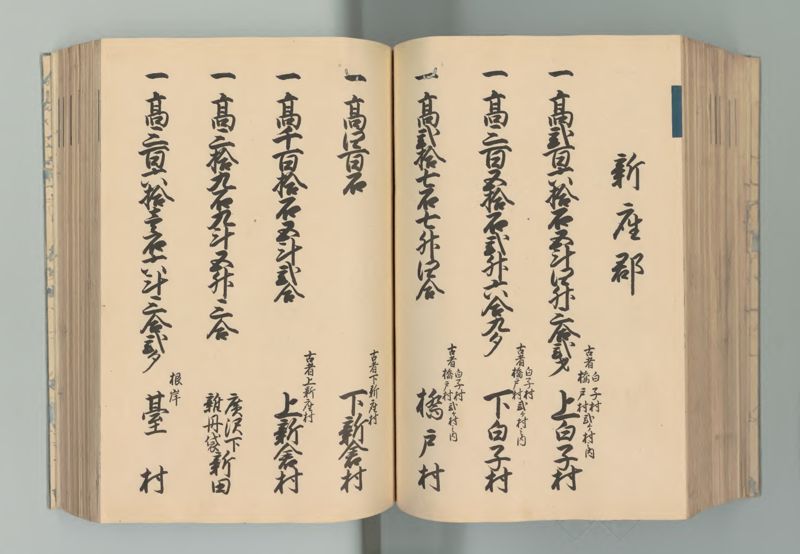 新座郡
一 高弐百六拾石五斗四升三合弐夕
古者 白子村
橋戸村弐ケ村之内
上白子村
一 高三百五拾石弐升六合九夕
白子村
古者橋戸村弐ケ村之内
下白子村
一 高弐拾七石七升四合
白子村
古者橋戸村弐ケ村之内
橋戸村
一 高四百石
古者下新座村
下新倉村
一 高千百拾石五斗弐合
古者上新座村
上新倉村
一 高三拾九石九斗五升三合
廣沢下
新田
一 高三百六拾壱石八斗三合弐夕
根岸
臺村